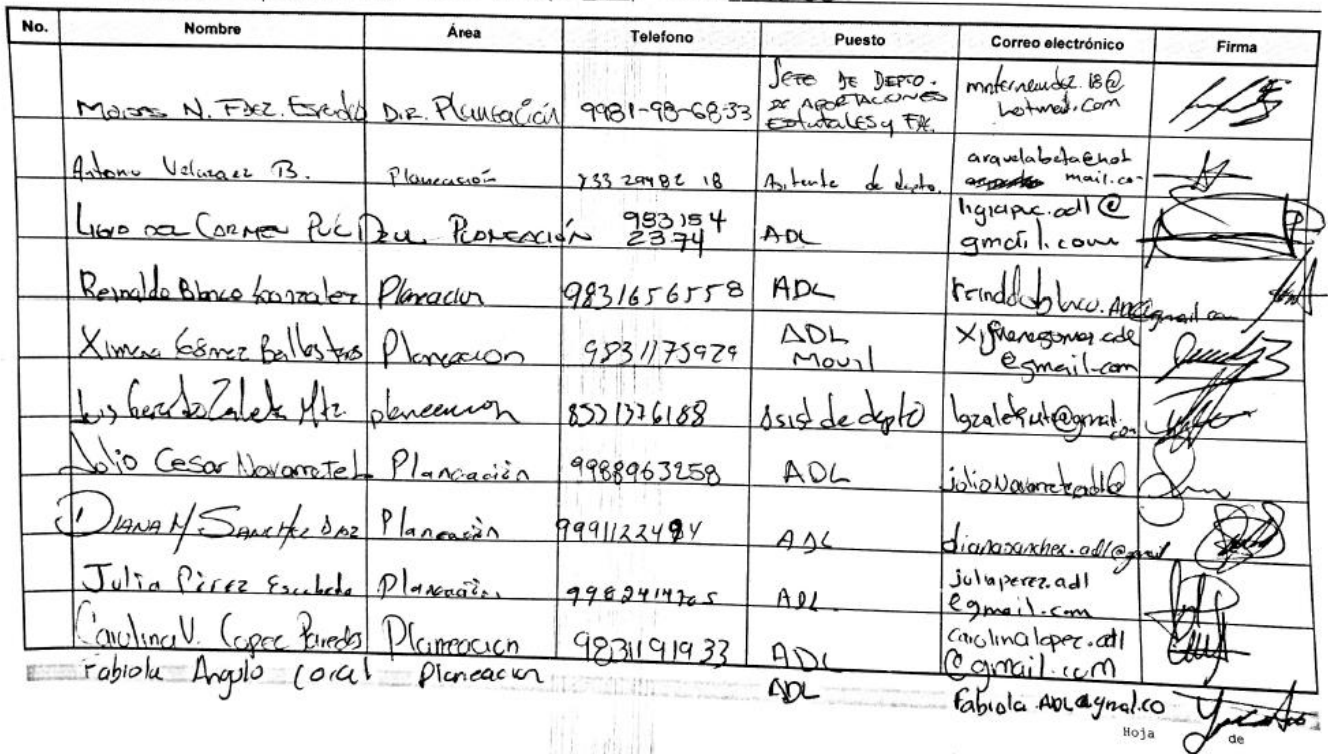 No. Nombre Área Telefono Puesto Correo electrónico Firma
N. Fdez. Dir. Planeación 9981-98-68-33 Jefe de Depto. de Aportaciones Estatales y mnfernandez.18@hotmail.com
Antonio Velazquez B. Planeación 29482 18 de depto. mail.co
del Carmen Puc Dzul Planeación 983 154 2374 ADL ligiapuc.adl@gmail.com
Reinaldo Blanco Gonzalez Planeacion 9831656558 ADL
Ximena Gómez Ballesteros Planeacion 9831175929 ADL Movil @gmail.com
Luis Gerardo Zaleta Mtz. planeacion Asist de depto
Julio Cesar Navarrete L Planeación 9988963258 ADL julionavarreteadl@
Diana M Sanchez Planeación ADL dianasanchez.adl@gmail
Julia Pérez Escobedo Planeación ADL juliaperez.adl@gmail.com
Carolina V. Lopez Paredes Planeacion 9831191933 ADL carolinalopez.adl@gmail.com
Fabiola Angulo Coral Planeacion ADL
Hoja de